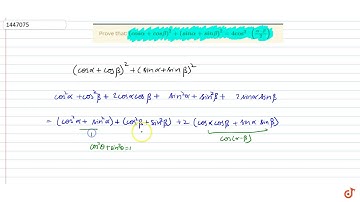 1447075
Prove that: (cosα + cosβ)² + (sinα + sinβ)² = 4cos²
(cosα + cosβ)² + (sinα + sinβ)²
cos²α + cos²β + 2cosαcosβ + sin²α + sin²β + 2sinαsinβ
= (cos²α + sin²α) + (cos²β + sin²β) + 2 (cosαcosβ + sinαsinβ)
1 cos(α-β)
cos²θ + sin²θ = 1